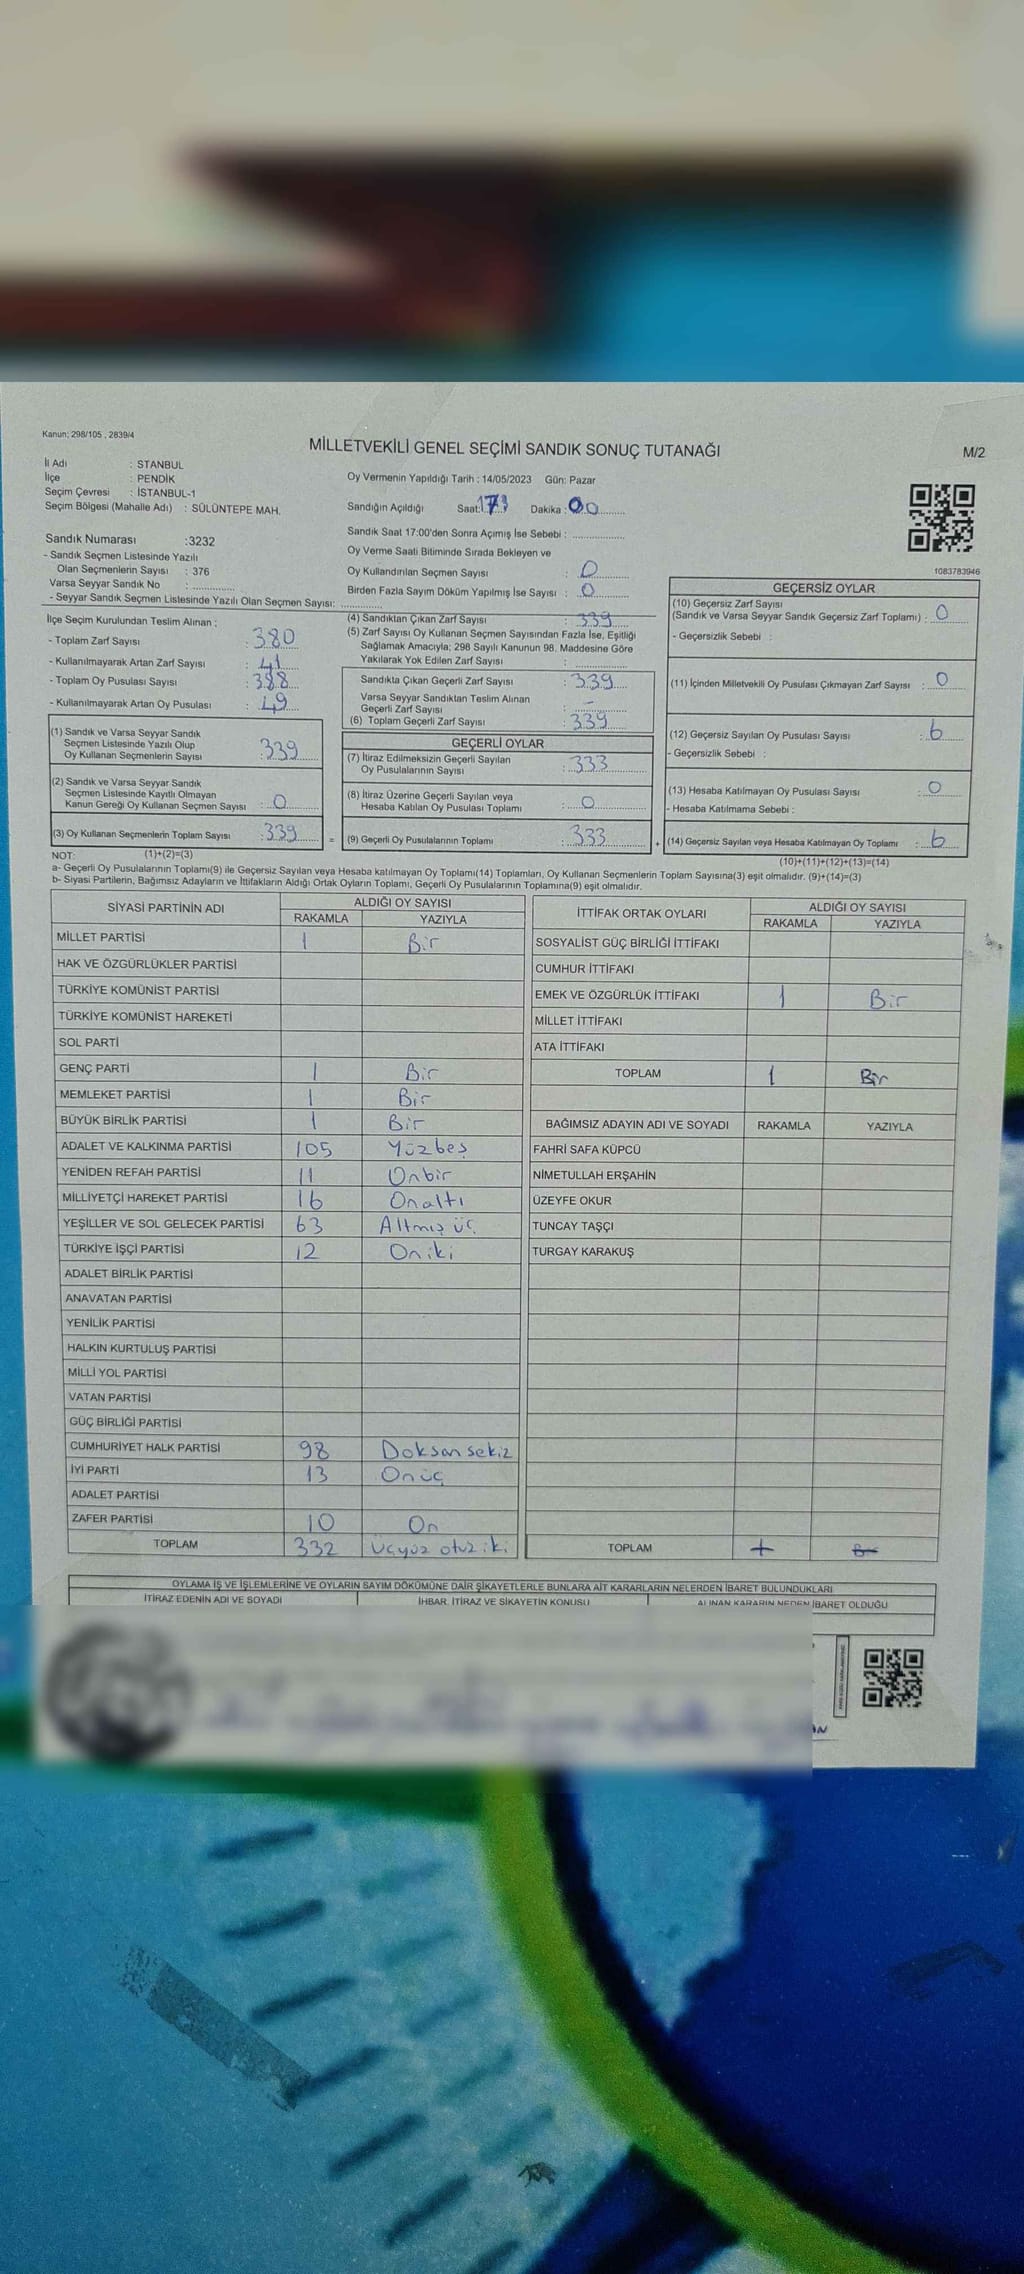 Kanun: 298/105 , 2839/4
MİLLETVEKİLİ GENEL SEÇİMİ SANDIK SONUÇ TUTANAĞI
M/2
İl Adı : STANBUL
İlçe : PENDİK
Seçim Çevresi : İSTANBUL-1
Seçim Bölgesi (Mahalle Adı) : SÜLÜNTEPE MAH.
Oy Vermenin Yapıldığı Tarih : 14/05/2023 Gün: Pazar
Sandığın Açıldığı Saat: 17 Dakika : 00
Sandık Saat 17:00'den Sonra Açımış İse Sebebi :
Oy Verme Saati Bitiminde Sırada Bekleyen ve
Oy Kullandırılan Seçmen Sayısı : 0
Birden Fazla Sayım Döküm Yapılmış İse Sayısı : 0
Sandık Numarası :3232
- Sandık Seçmen Listesinde Yazılı
Olan Seçmenlerin Sayısı : 376
Varsa Seyyar Sandık No :
- Seyyar Sandık Seçmen Listesinde Yazılı Olan Seçmen Sayısı:
1083783946
İlçe Seçim Kurulundan Teslim Alınan ;
- Toplam Zarf Sayısı : 380
- Kullanılmayarak Artan Zarf Sayısı : 41
- Toplam Oy Pusulası Sayısı : 388
- Kullanılmayarak Artan Oy Pusulası : 49
(1) Sandık ve Varsa Seyyar Sandık
Seçmen Listesinde Yazılı Olup
Oy Kullanan Seçmenlerin Sayısı : 339
(2) Sandık ve Varsa Seyyar Sandık
Seçmen Listesinde Kayıtlı Olmayan
Kanun Gereği Oy Kullanan Seçmen Sayısı : 0
(3) Oy Kullanan Seçmenlerin Toplam Sayısı : 339
(4) Sandıktan Çıkan Zarf Sayısı : 339
(5) Zarf Sayısı Oy Kullanan Seçmen Sayısından Fazla İse, Eşitliği
Sağlamak Amacıyla; 298 Sayılı Kanunun 98. Maddesine Göre
Yakılarak Yok Edilen Zarf Sayısı :
Sandıkta Çıkan Geçerli Zarf Sayısı : 339
Varsa Seyyar Sandıktan Teslim Alınan
Geçerli Zarf Sayısı : -
(6) Toplam Geçerli Zarf Sayısı : 339
GEÇERLİ OYLAR
(7) İtiraz Edilmeksizin Geçerli Sayılan
Oy Pusulalarının Sayısı : 333
(8) İtiraz Üzerine Geçerli Sayılan veya
Hesaba Katılan Oy Pusulası Toplamı : 0
= (9) Geçerli Oy Pusulalarının Toplamı : 333 +
GEÇERSİZ OYLAR
(10) Geçersiz Zarf Sayısı
(Sandık ve Varsa Seyyar Sandık Geçersiz Zarf Toplamı) : 0
- Geçersizlik Sebebi :
(11) İçinden Milletvekili Oy Pusulası Çıkmayan Zarf Sayısı : 0
(12) Geçersiz Sayılan Oy Pusulası Sayısı : 6
- Geçersizlik Sebebi :
(13) Hesaba Katılmayan Oy Pusulası Sayısı : 0
- Hesaba Katılmama Sebebi :
(14) Geçersiz Sayılan veya Hesaba Katılmayan Oy Toplamı : 6
NOT: (1)+(2)=(3)
(10)+(11)+(12)+(13)=(14)
a- Geçerli Oy Pusulalarının Toplamı(9) ile Geçersiz Sayılan veya Hesaba katılmayan Oy Toplamı(14) Toplamları, Oy Kullanan Seçmenlerin Toplam Sayısına(3) eşit olmalıdır. (9)+(14)=(3)
b- Siyasi Partilerin, Bağımsız Adayların ve İttifakların Aldığı Ortak Oyların Toplamı, Geçerli Oy Pusulalarının Toplamına(9) eşit olmalıdır.
SİYASİ PARTİNİN ADI ALDIĞI OY SAYISI
RAKAMLA YAZIYLA
MİLLET PARTİSİ 1 Bir
HAK VE ÖZGÜRLÜKLER PARTİSİ
TÜRKİYE KOMÜNİST PARTİSİ
TÜRKİYE KOMÜNİST HAREKETİ
SOL PARTİ
GENÇ PARTİ 1 Bir
MEMLEKET PARTİSİ 1 Bir
BÜYÜK BİRLİK PARTİSİ 1 Bir
ADALET VE KALKINMA PARTİSİ 105 Yüzbeş
YENİDEN REFAH PARTİSİ 11 Onbir
MİLLİYETÇİ HAREKET PARTİSİ 16 Onaltı
YEŞİLLER VE SOL GELECEK PARTİSİ 63 Altmış üç
TÜRKİYE İŞÇİ PARTİSİ 12 Oniki
ADALET BİRLİK PARTİSİ
ANAVATAN PARTİSİ
YENİLİK PARTİSİ
HALKIN KURTULUŞ PARTİSİ
MİLLİ YOL PARTİSİ
VATAN PARTİSİ
GÜÇ BİRLİĞİ PARTİSİ
CUMHURİYET HALK PARTİSİ 98 Doksan sekiz
İYİ PARTİ 13 Onüç
ADALET PARTİSİ
ZAFER PARTİSİ 10 On
TOPLAM 332 üçyüz otuz iki
İTTİFAK ORTAK OYLARI ALDIĞI OY SAYISI
RAKAMLA YAZIYLA
SOSYALİST GÜÇ BİRLİĞİ İTTİFAKI
CUMHUR İTTİFAKI
EMEK VE ÖZGÜRLÜK İTTİFAKI 1 Bir
MİLLET İTTİFAKI
ATA İTTİFAKI
TOPLAM 1 Bir
BAĞIMSIZ ADAYIN ADI VE SOYADI RAKAMLA YAZIYLA
FAHRİ SAFA KÜPCÜ
NİMETULLAH ERŞAHİN
ÜZEYFE OKUR
TUNCAY TAŞÇI
TURGAY KARAKUŞ
TOPLAM
OYLAMA İŞ VE İŞLEMLERİNE VE OYLARIN SAYIM DÖKÜMÜNE DAİR ŞİKAYETLERLE BUNLARA AİT KARARLARIN NELERDEN İBARET BULUNDUKLARI
İTİRAZ EDENİN ADI VE SOYADI İHBAR, İTİRAZ VE ŞİKAYETİN KONUSU ALINAN KARARIN NEDEN İBARET OLDUĞU